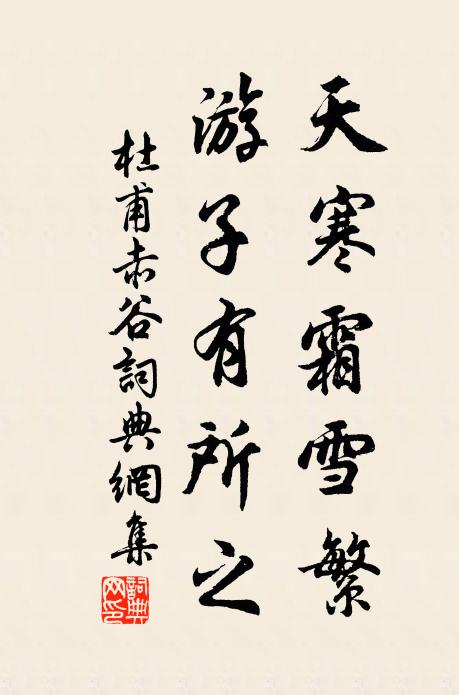 天寒霜雪繁
游子有所之
杜甫赤谷詞典網集
詞典網印